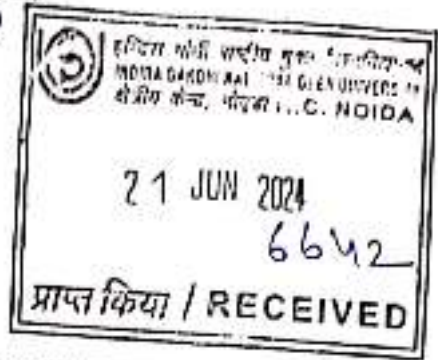 इन्दिरा गाँधी राष्ट्रीय मुक्त
INDIRA GANDHI NATIONAL OPEN UNIVERSITY
क्षेत्रीय केन्द्र, नोएडा R.C. NOIDA
21 JUN 2024
6642
प्राप्त किया / RECEIVED